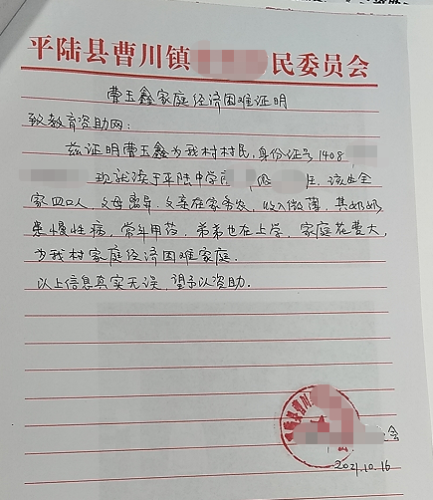 平陆县曹川镇 民委员会
曹玉鑫家庭经济困难证明
致教育资助网:
兹证明曹玉鑫为我村村民,身份证号1408
现就读于平陆中学 该生全
家四口人,父母离异,父亲在家务农,收入微薄,其奶奶
患慢性病,常年用药,弟弟也在上学,家庭花费大,
为我村家庭经济困难家庭.
以上信息真实无误,望予以资助.
平陆县曹川
会
2021.10.16